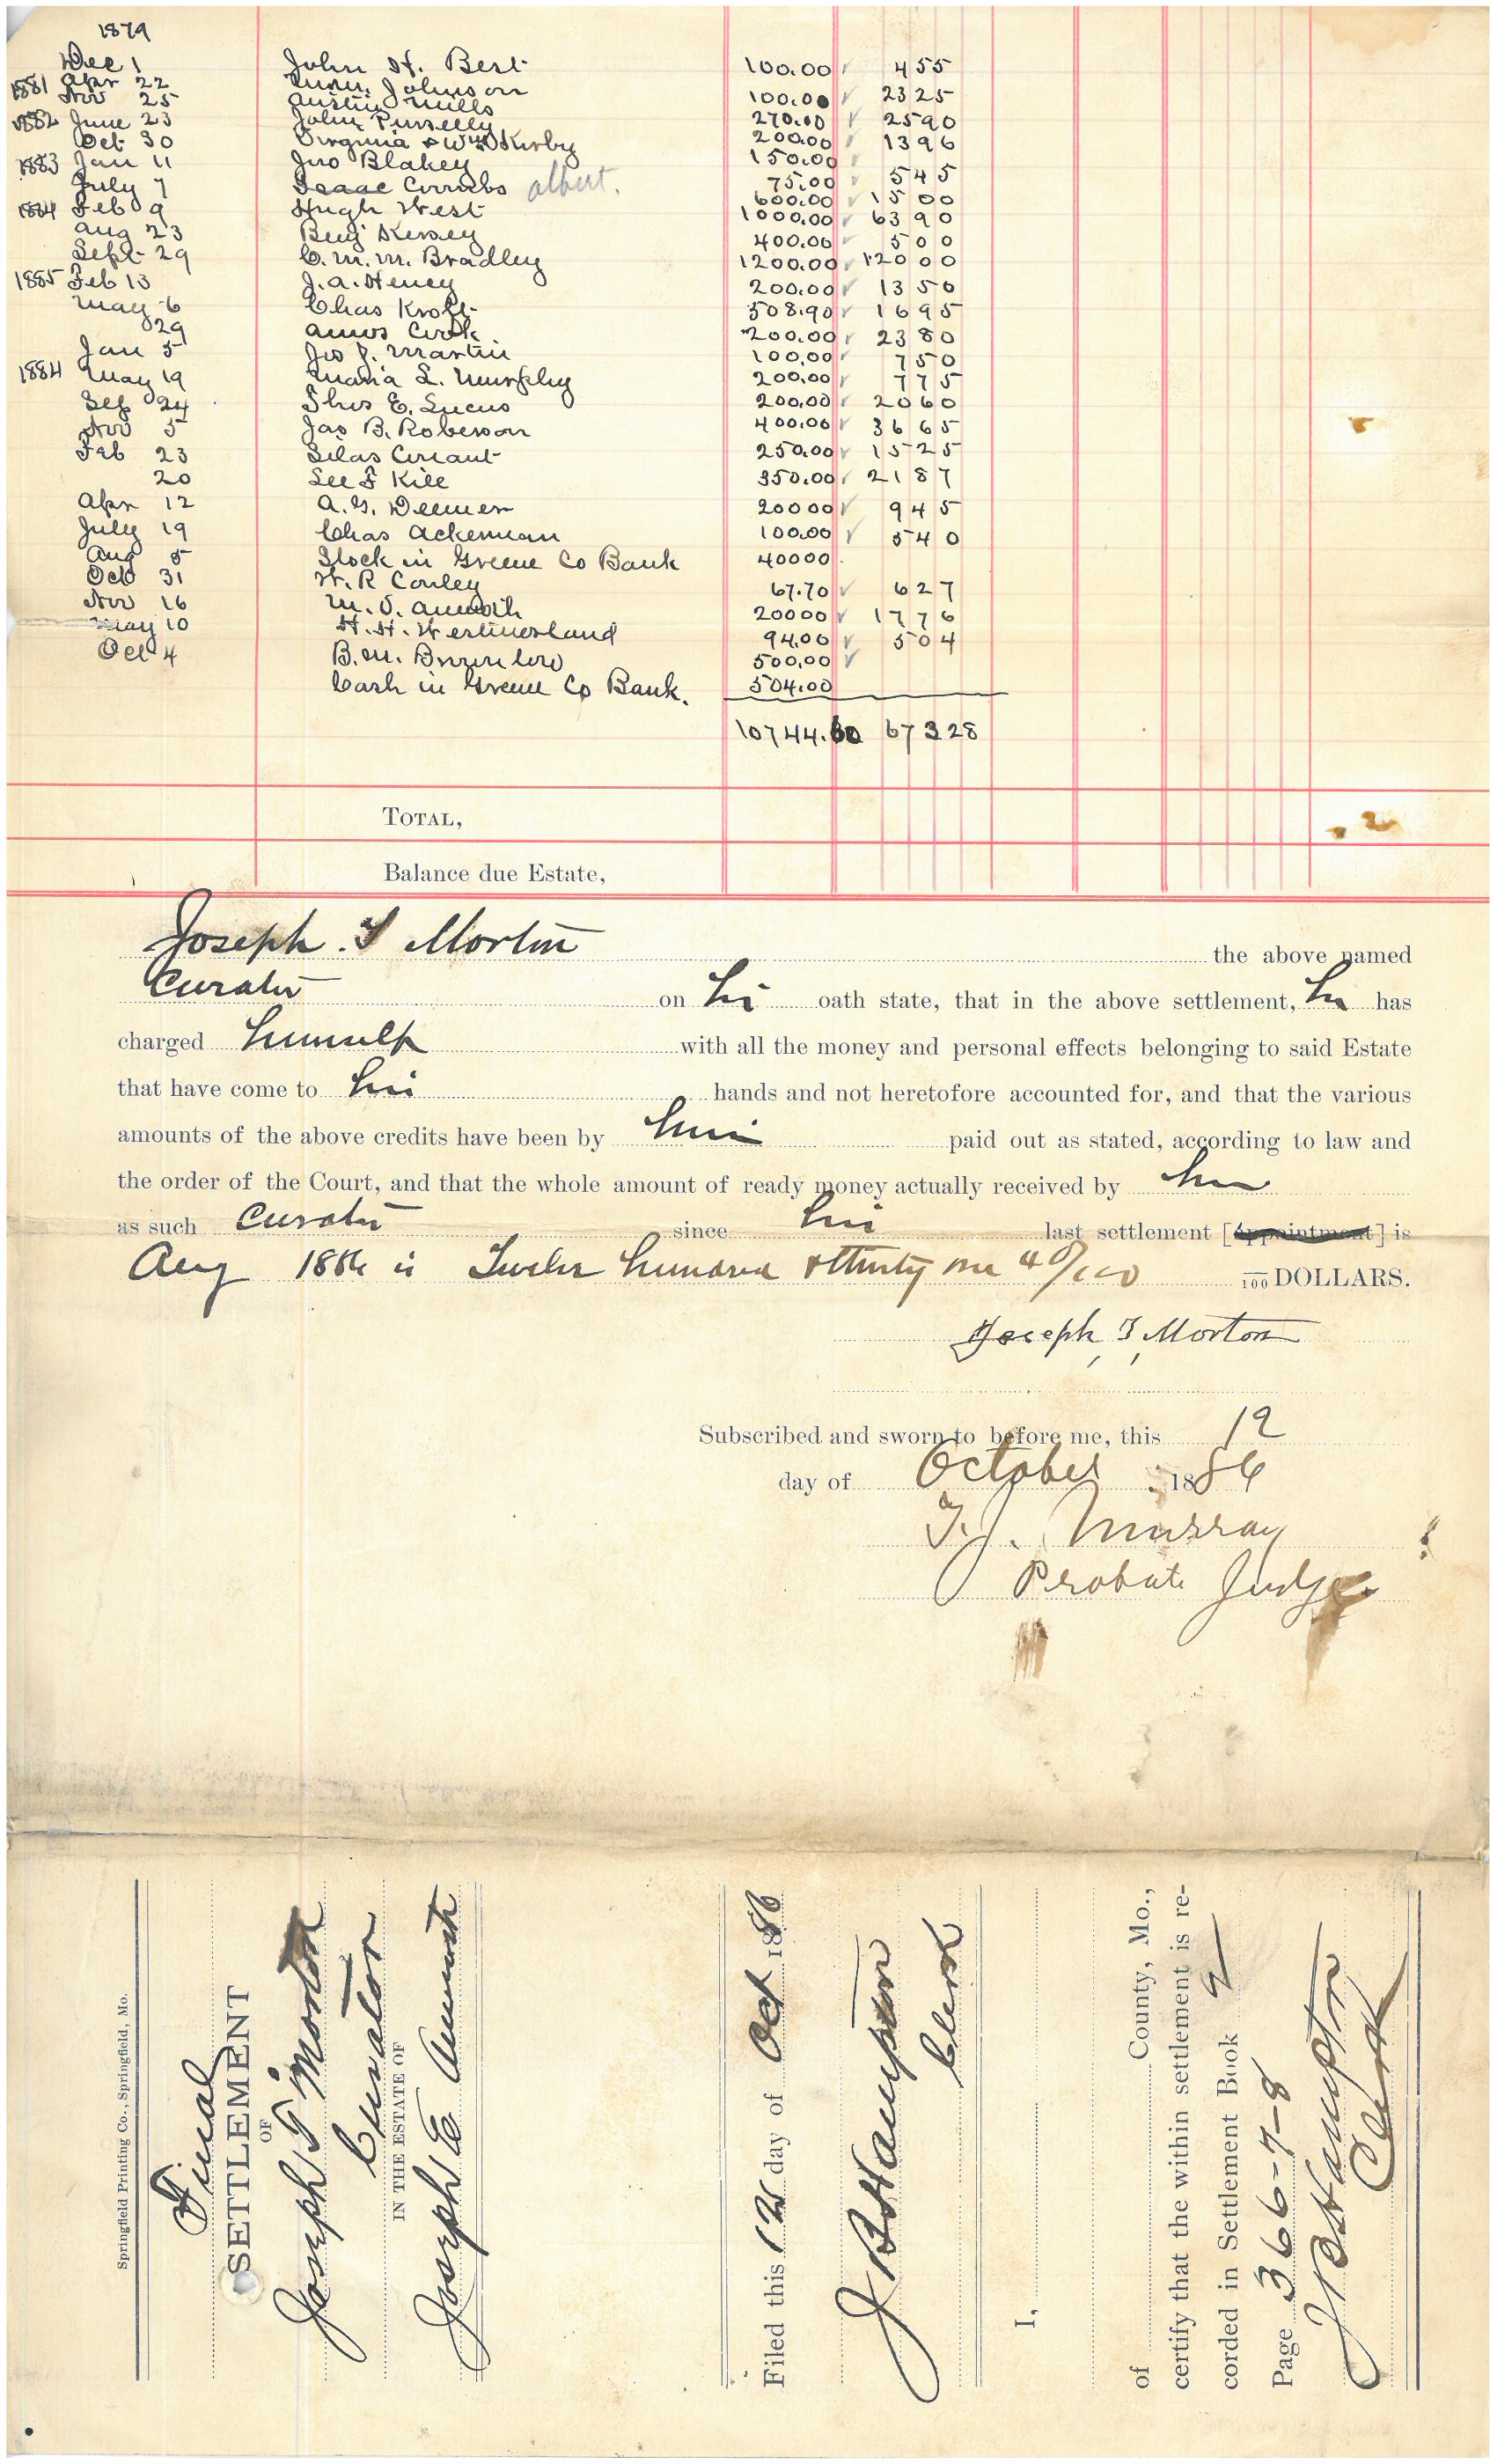 1879
Dec 1 John H. Bert 100.00 455
1881 Apr 22 Johnson 100.00 2325
Nov 25 Austin Mills 270.00 2590
1882 June 23 John Purselley 200.00 1396
Oct 30 Virginia & Wm Kirby 150.00
1883 Jan 11 Jno Blakey 75.00 545
July 7 Isaac Combs albert. 600.00 1500
1884 Feb 9 Hugh West 1000.00 6390
Aug 23 Benj Kersey 400.00 500
Sept 29 C. M. M. Bradley 1200.00 12000
1885 Feb 13 J. A. Heney 200.00 1350
May 6 Chas Kroft 508.90 1695
29 Amos Cook 200.00 2380
Jan 5 Jos J. Martin 100.00 750
1884 May 19 Maria L. Murphy 200.00 775
Sep 24 Thos E. Lucus 200.00 2060
Nov 5 Jas B. Roberson 400.00 3665
Feb 23 Silas 250.00 1525
20 Lee F Kile 350.00 2187
Apr 12 A. G. Deemer 20000 945
July 19 Chas Ackerman 100.00 540
Aug 5 Stock in Greene Co Bank 40000
Oct 31 W. R Conley 67.70 627
Nov 16 M. V. 20000 1776
May 10 H. H. Westmorland 94.00 504
Oct 4 B. M. Brownlow 500.00
Cash in Greene Co Bank. 504.00
10744.60 67328
TOTAL,
Balance due Estate,
Joseph T Morton the above named
Curator on his oath state, that in the above settlement, he has
charged himself with all the money and personal effects belonging to said Estate
that have come to his hands and not heretofore accounted for, and that the various
amounts of the above credits have been by him paid out as stated, according to law and
the order of the Court, and that the whole amount of ready money actually received by him
as such Curator since his last settlement [Appointment] is
Aug 1886 is Twelve hundred & thirty one 40/100 100 DOLLARS.
Joseph T Morton
Subscribed and sworn to before me, this 12
day of October 1886
T. J. Murray
Probate Judge
Springfield Printing Co., Springfield, Mo.
Final
SETTLEMENT
OF
Joseph T Morton
Curator
IN THE ESTATE OF
Joseph E
Filed this 12 day of Oct 1886
J B Hampton
Clerk
I,
of County, Mo.,
certify that the within settlement is re-
corded in Settlement Book 2
Page 366-7-8
J B Hampton
Clerk